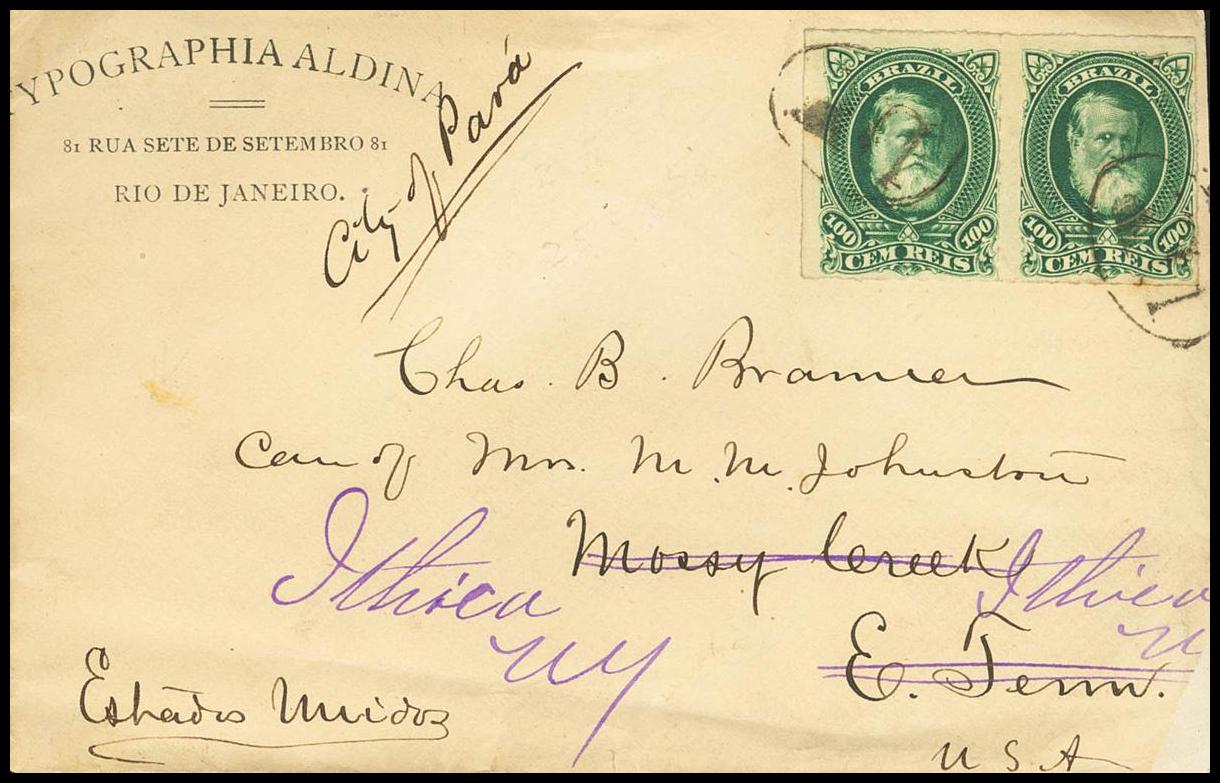 TYPOGRAPHIA ALDINA
81 RUA SETE DE SETEMBRO 81
RIO DE JANEIRO.
City of Pará
BRAZIL BRAZIL
100 100 100 100
CEM REIS CEM REIS
Chas. B. Bramcer
Care of Mrs. M. M. Johnston
Mossy Creek
Ithica Ithica
NY N
E. Tenn.
Estados Unidos
U S A